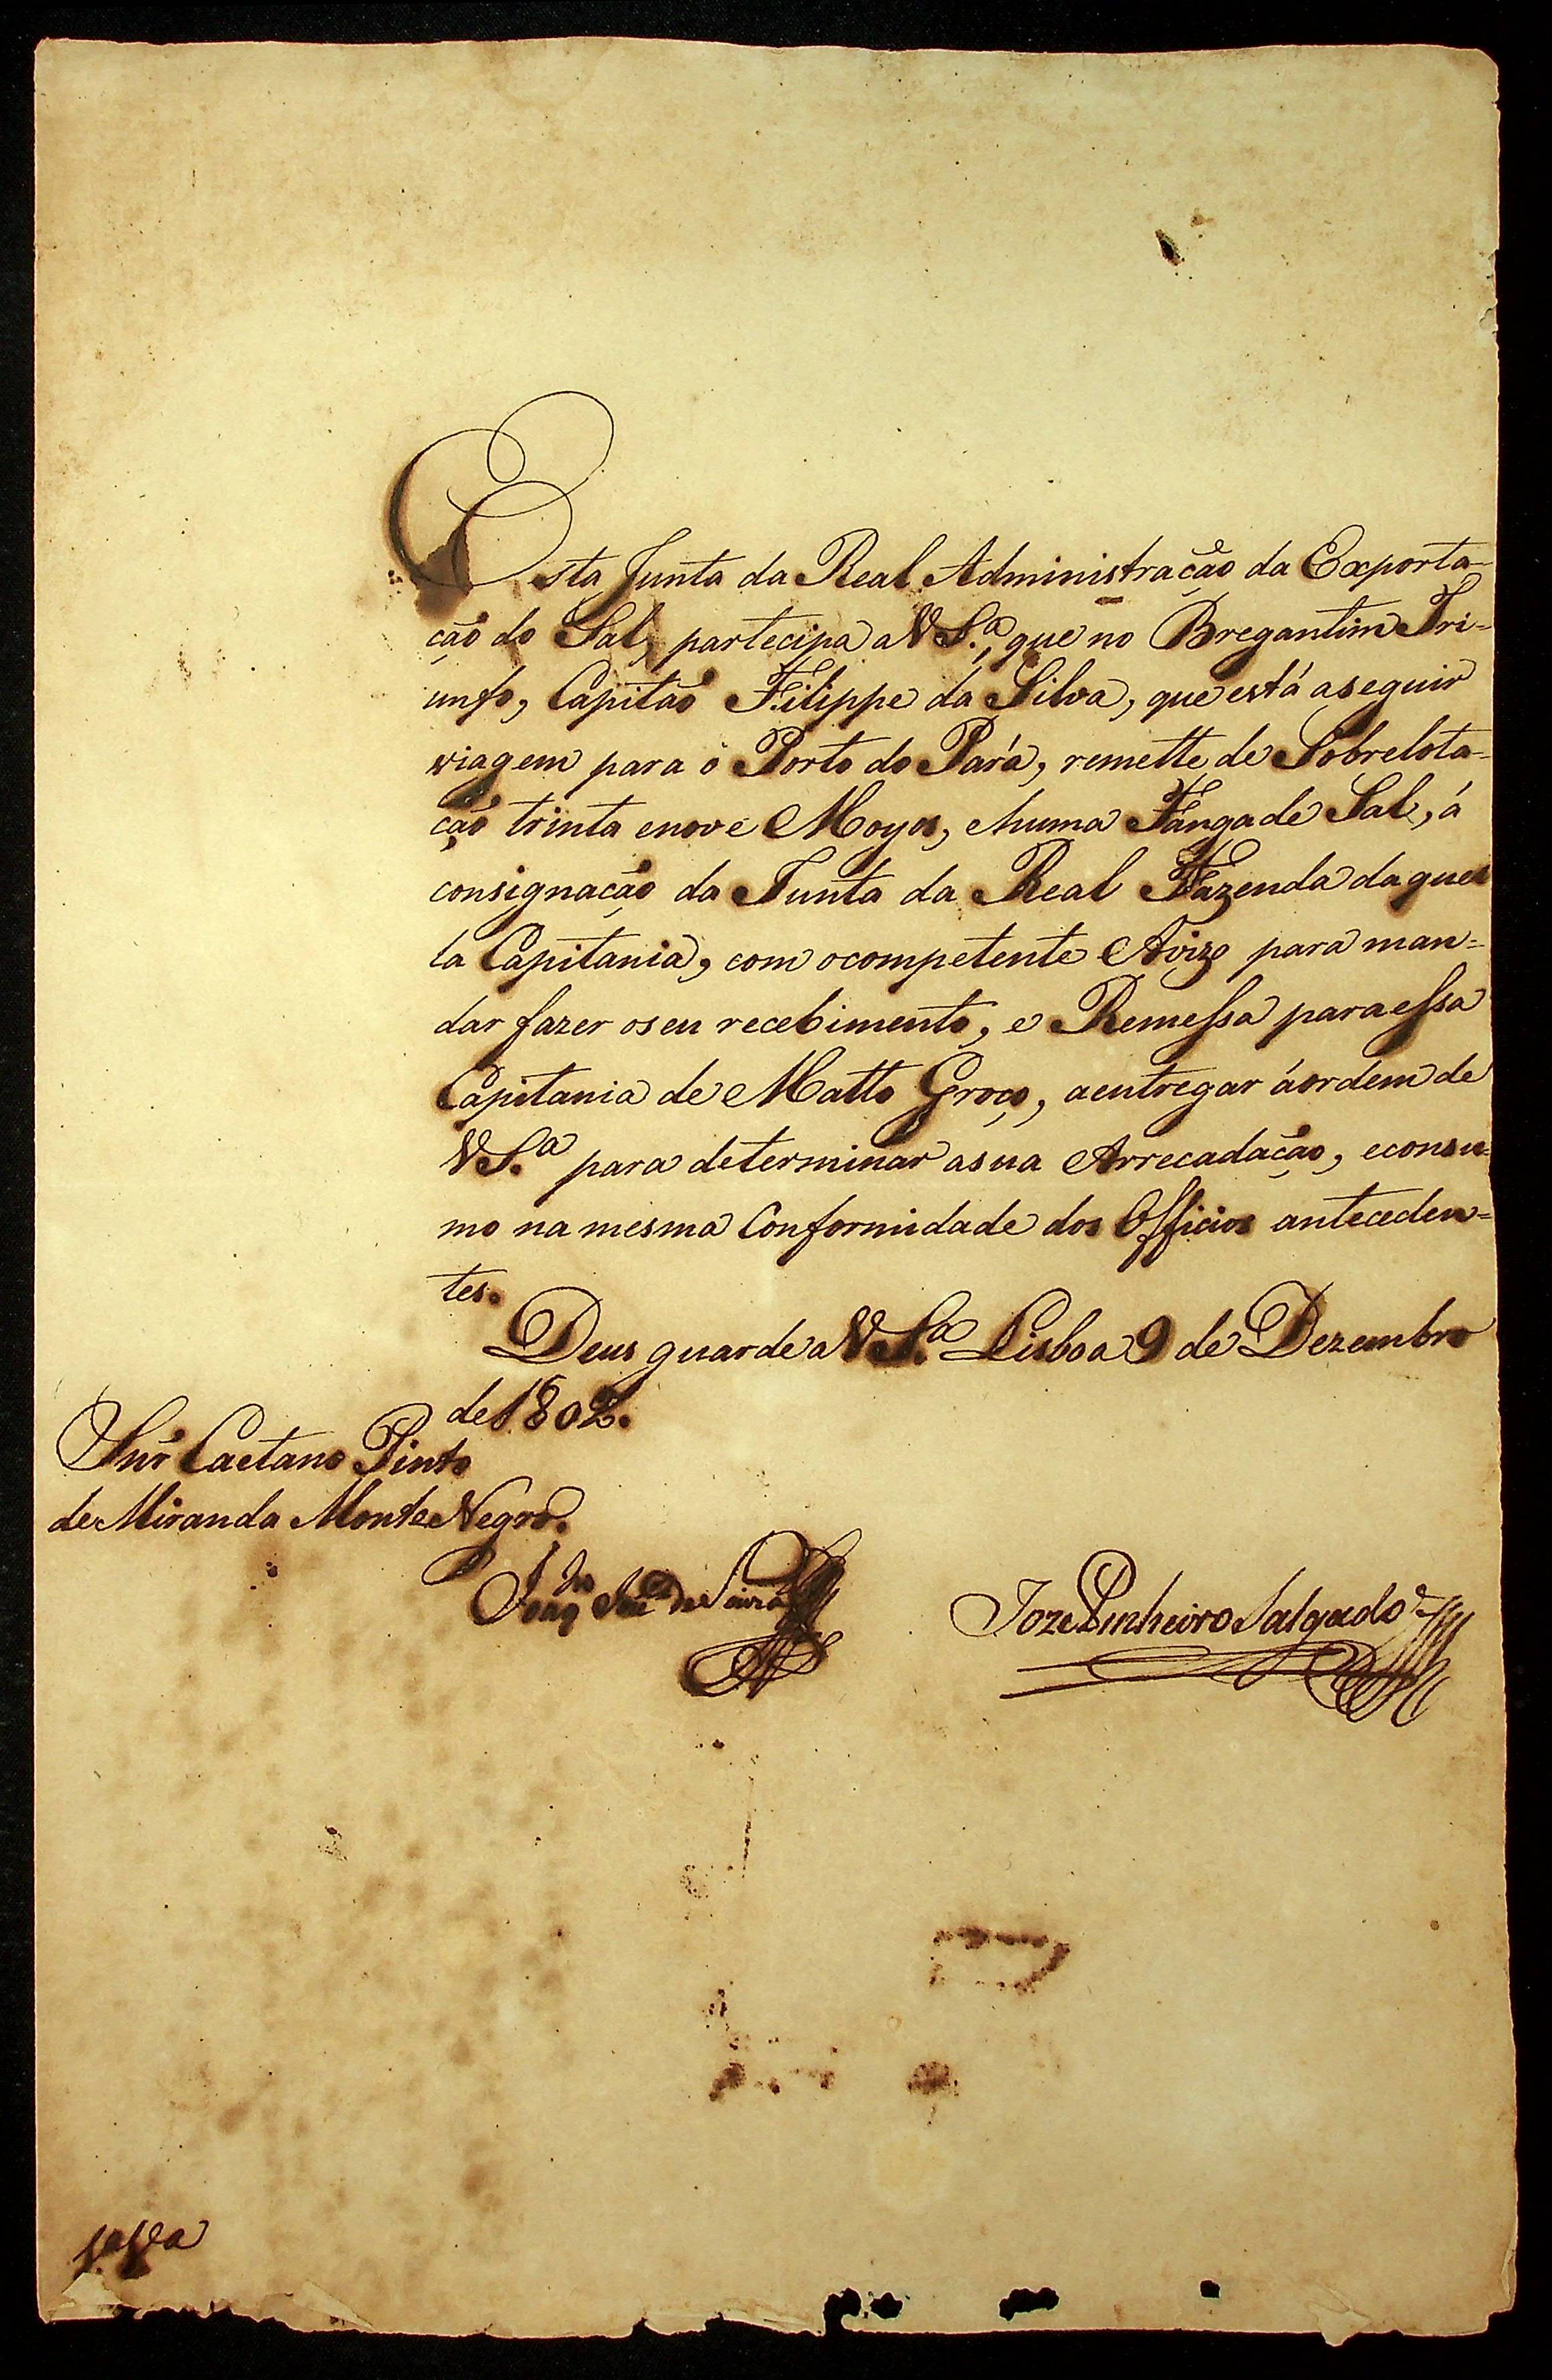 Esta Junta da Real Administração da Exporta-
ção do Sal, partecipa a V S.ª, que no Bregantim Tri-
unfo, Capitaõ Filippe da Silva, que está aseguir
viagem para o Porto do Pará, remette de Sobrelota-
çaõ trinta enove Moyos, ehuma Fanga de Sal, á
consignação da Junta da Real Fazenda daquel
la Capitania, com ocompetente Avizo para man=
dar fazer oseu recebimento, e Remessa paraessa
Capitania de Matto Groço, aentregar áordem de
V S.ª para determinar asua Arrecadação, econsu-
mo na mesma Conformidade dos Officios anteceden=
tes.
Deus guarde a V S.ª Lisboa 9 de Dezembro
de 1802.
Snr Caetano Pinto
de Miranda Monte Negro.
Joze Pinheiro Salgado